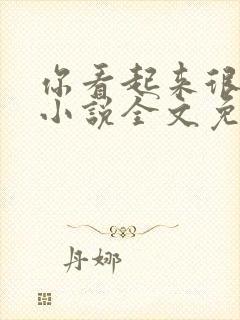 你看起来很
小説全文免
丹娜